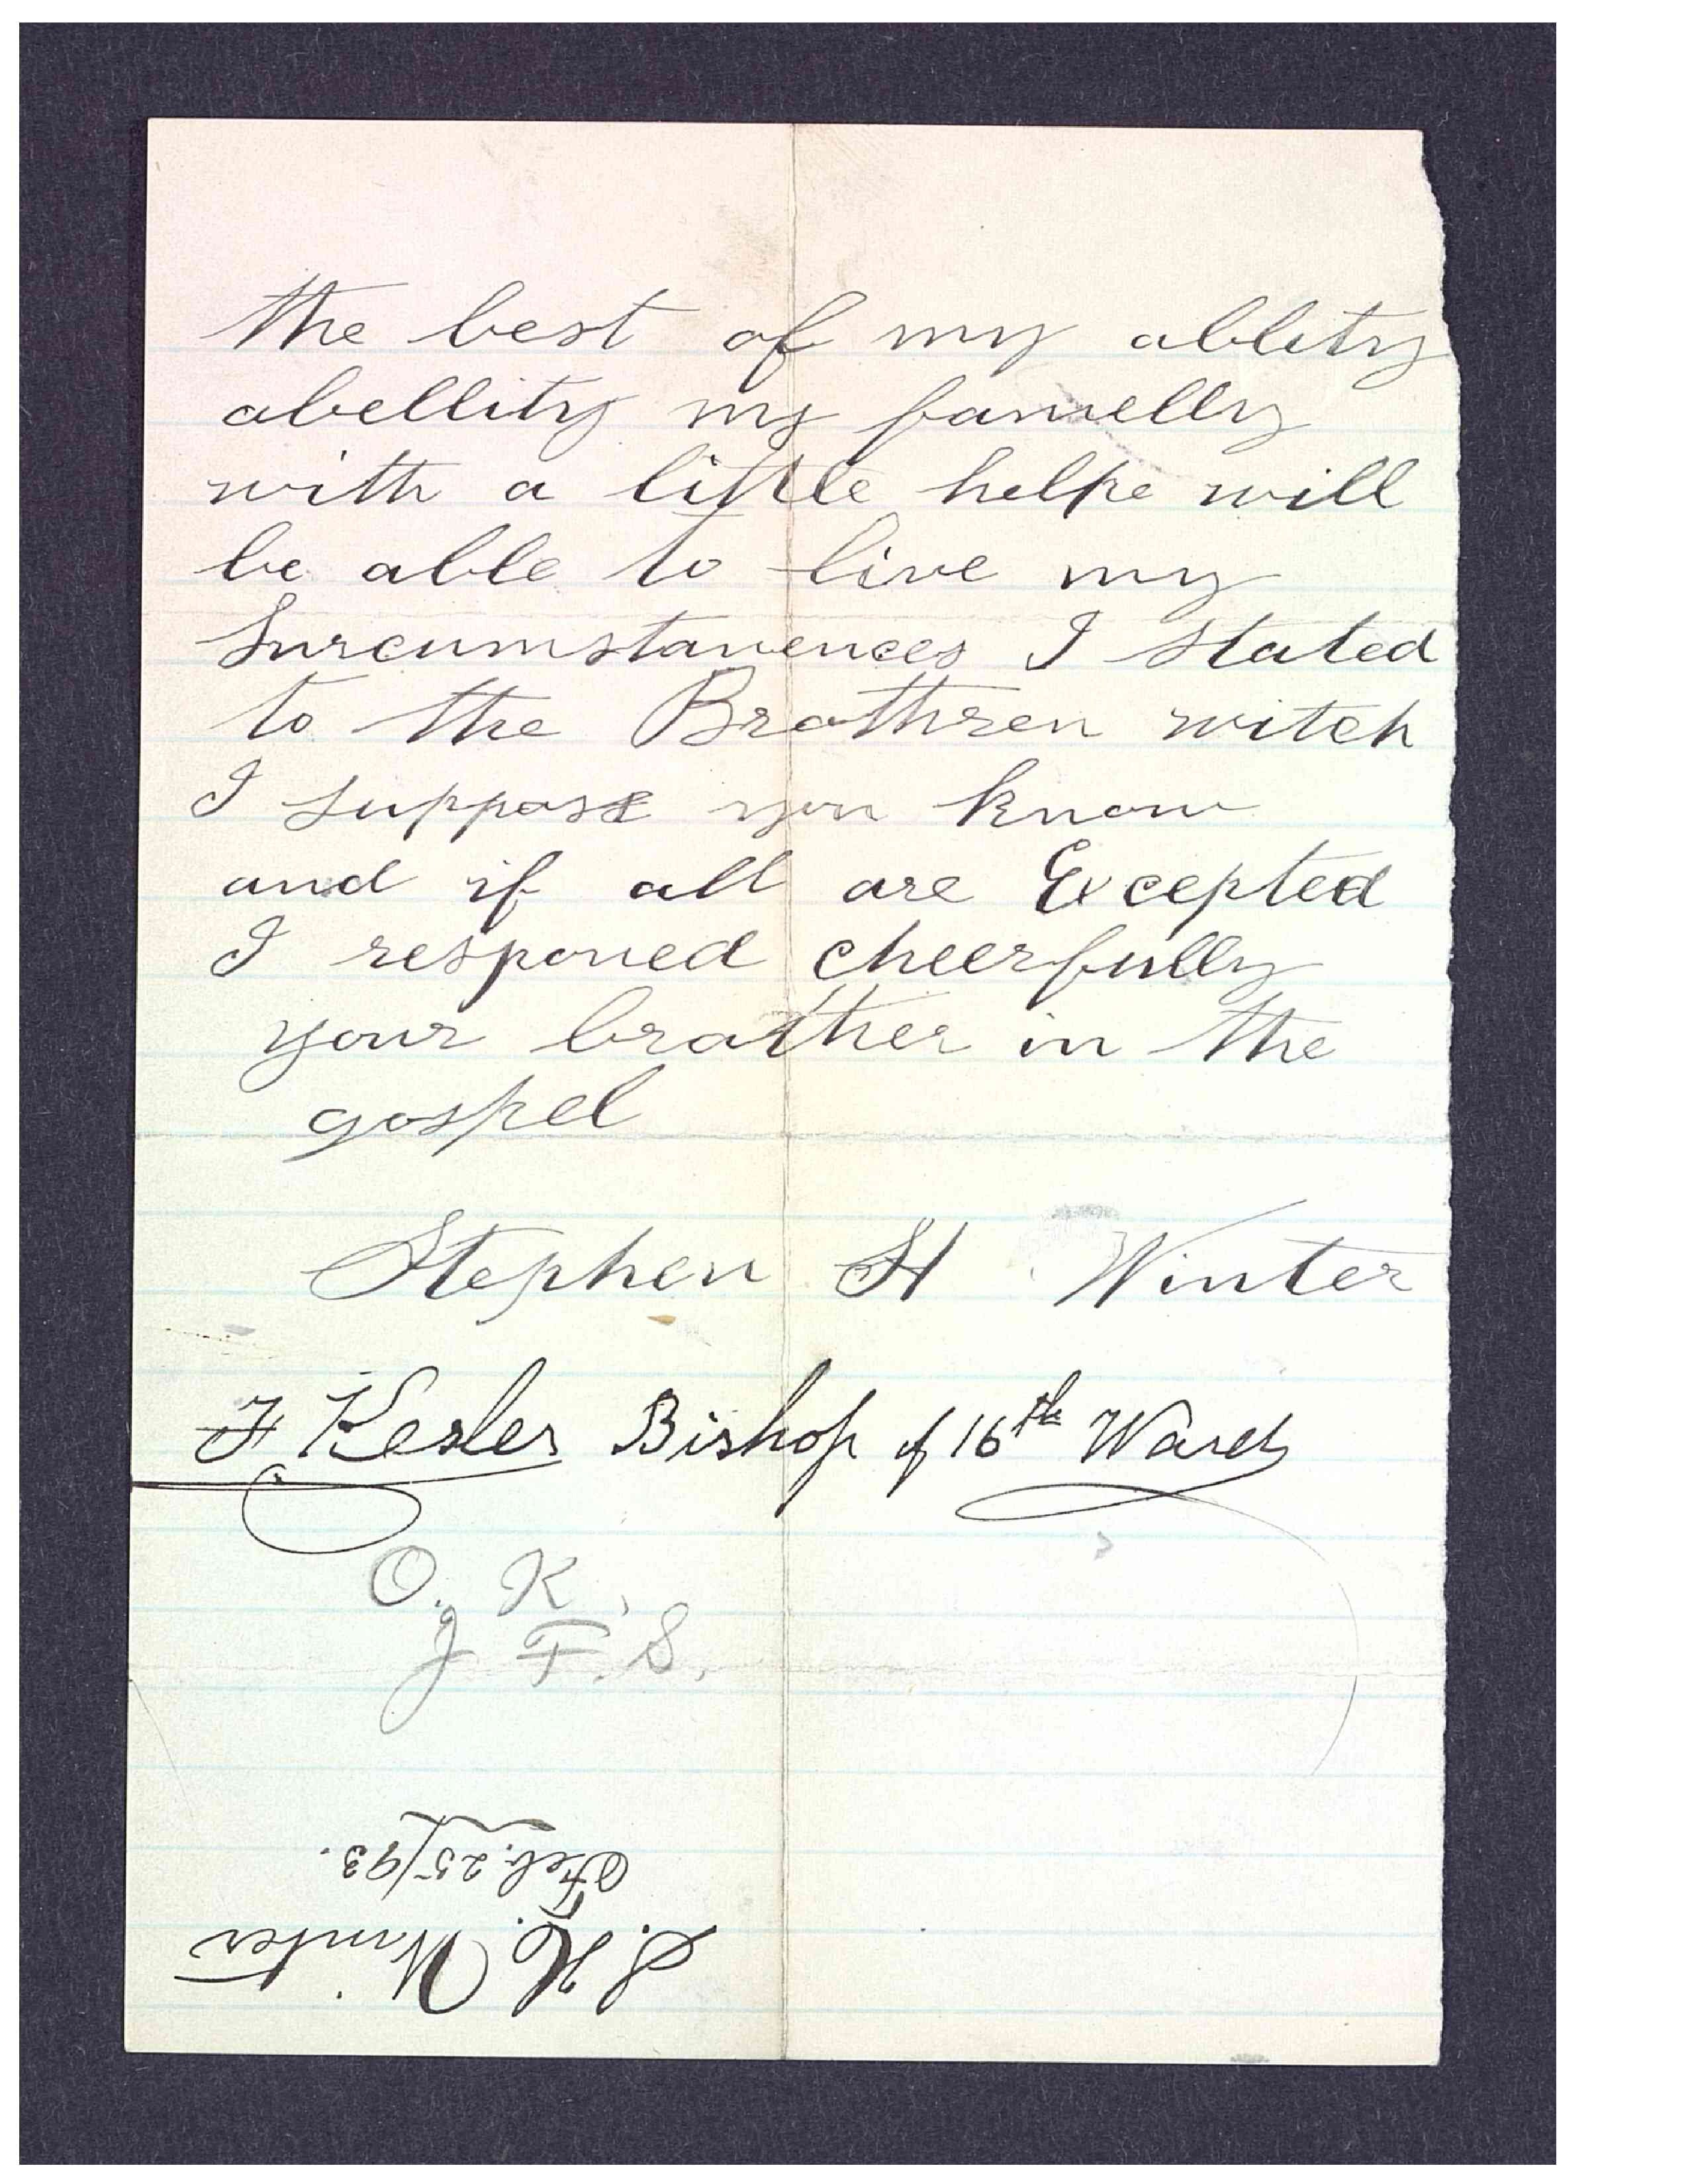 the best of my ablity
abellity my famelly
with a little helpe will
be able to live my
Surcumstanences I stated
to the Brothren witch
I suppose you know
and if all are Excepted
I responed cheerfully
your brother in the
gospel
Stephen H Winter
F Kesler Bishop of 16th Ward
O. K.
J F. S.
S. H. Winter
Feb. 25/93.